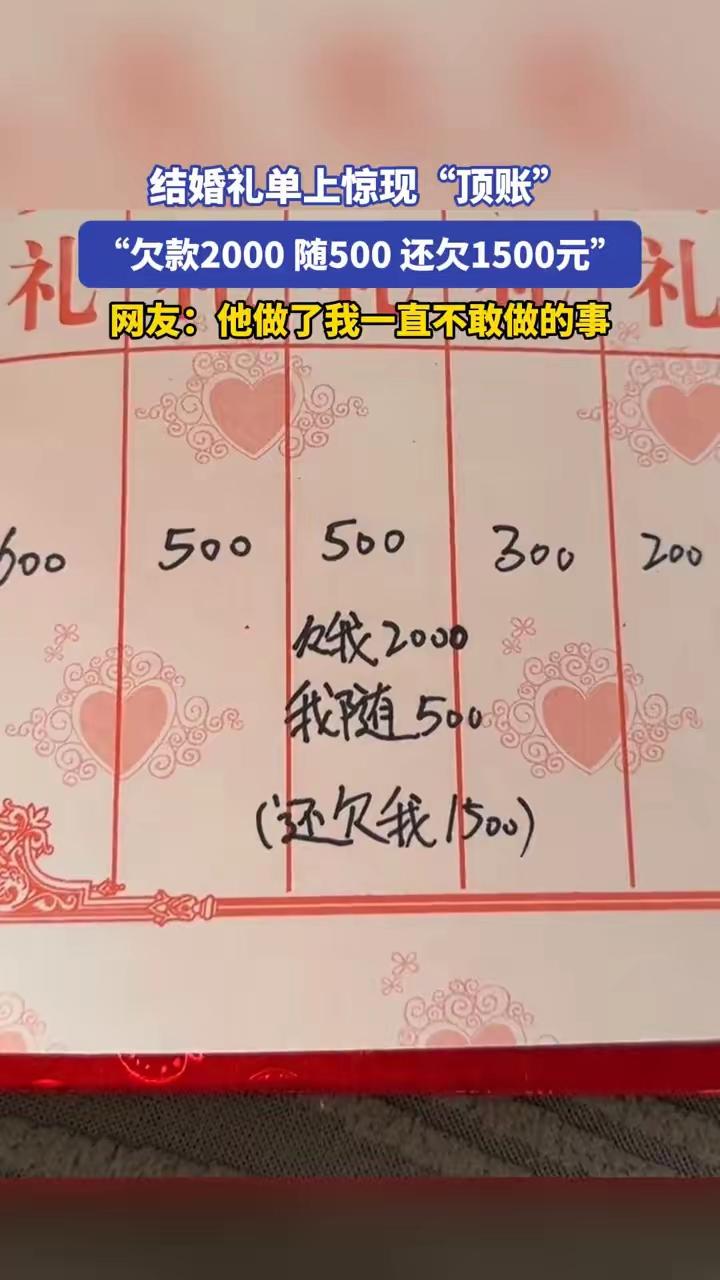 结婚礼单上惊现“顶账”
“欠款2000 随500 还欠1500元”
网友：他做了我一直不敢做的事
礼 礼
600 500 500 300 200
欠我2000
我随500
(还欠我1500)